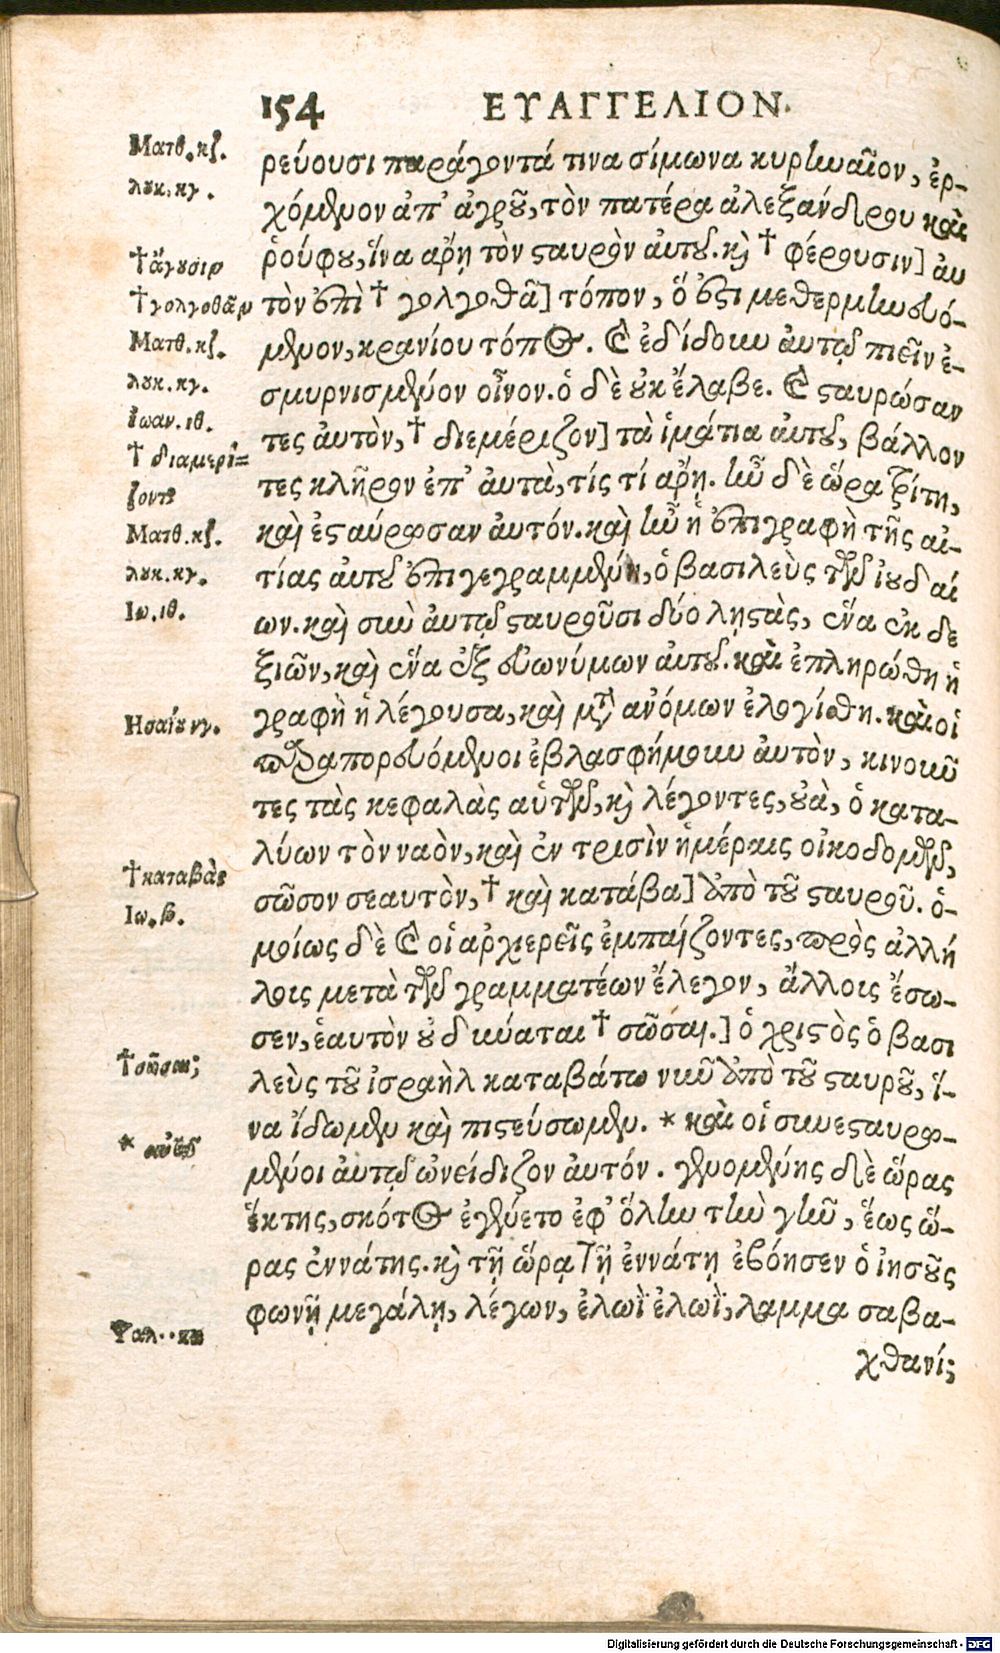 154 ΕΥΑΓΓΕΛΙΟΝ.
Ματθ. κζ.
λουκ. κγ.
†ἄγουσιν
†γολγοθᾶν
Ματθ. κζ.
λουκ. κγ.
ἰωαν. ιθ.
† διαμερί=
ζονται
Ματθ. κζ.
λουκ. κγ.
Ιω. ιθ.
Ησαίου νγ.
†καταβὰς
Ιω. β.
†σῶσαι;
* αὐτῷ
Ψαλ. κα
ρεύουσι παράγοντά τινα σίμωνα κυρηναῖον, ἐρ-
χόμενον ἀπ' ἀγροῦ, τὸν πατέρα ἀλεξάνδρου καὶ
ῥούφου, ἵνα ἄρῃ τὸν σταυρὸν αὐτοῦ. καὶ † φέρουσιν] αὐ
τὸν ἐπὶ † γολγοθᾶ] τόπον, ὅ ἐστι μεθερμηνευό-
μενον, κρανίου τόπος. καὶ ἐδίδουν αὐτῷ πιεῖν ἐ-
σμυρνισμένον οἶνον. ὁ δὲ οὐκ ἔλαβε. καὶ σταυρώσαν
τες αὐτὸν, † διεμέριζον] τὰ ἱμάτια αὐτοῦ, βάλλον
τες κλῆρον ἐπ' αὐτὰ, τίς τί ἄρῃ. ἦν δὲ ὥρα τρίτη,
καὶ ἐσταύρωσαν αὐτόν. καὶ ἦν ἡ ἐπιγραφὴ τῆς αἰ-
τίας αὐτοῦ ἐπιγεγραμμένη, ὁ βασιλεὺς τῶν ἰουδαί
ων. καὶ σὺν αὐτῷ σταυροῦσι δύο λῃστὰς, ἕνα ἐκ δε
ξιῶν, καὶ ἕνα ἐξ εὐωνύμων αὐτοῦ. καὶ ἐπληρώθη ἡ
γραφὴ ἡ λέγουσα, καὶ μετὰ ἀνόμων ἐλογίσθη. καὶ οἱ
παραπορευόμενοι ἐβλασφήμουν αὐτὸν, κινοῦν
τες τὰς κεφαλὰς αὑτῶν, καὶ λέγοντες, οὐὰ, ὁ κατα-
λύων τὸν ναὸν, καὶ ἐν τρισὶν ἡμέραις οἰκοδομῶν,
σῶσον σεαυτὸν, † καὶ κατάβα] ἀπὸ τοῦ σταυροῦ. ὁ-
μοίως δὲ καὶ οἱ ἀρχιερεῖς ἐμπαίζοντες, πρὸς ἀλλή
λοις μετὰ τῶν γραμματέων ἔλεγον, ἄλλοις ἔσω-
σεν, ἑαυτὸν οὐ δύναται † σῶσαι.] ὁ χριστὸς ὁ βασι
λεὺς τοῦ ἰσραὴλ καταβάτω νῦν ἀπὸ τοῦ σταυροῦ, ἵ-
να ἴδωμεν καὶ πιστεύσωμεν. * καὶ οἱ συνεσταυρω-
μένοι αὐτῷ ὠνείδιζον αὐτόν. γενομένης δὲ ὥρας
ἕκτης, σκότος ἐγένετο ἐφ' ὅλην τὴν γῆν, ἕως ὥ-
ρας ἐννάτης. καὶ τῇ ὥρᾳ τῇ ἐννάτῃ ἐβόησεν ὁ ἰησοῦς
φωνῇ μεγάλῃ, λέγων, ἐλωῒ ἐλωῒ, λαμμα σαβα-
χθανί;
Digitalisierung gefördert durch die Deutsche Forschungsgemeinschaft - DFG